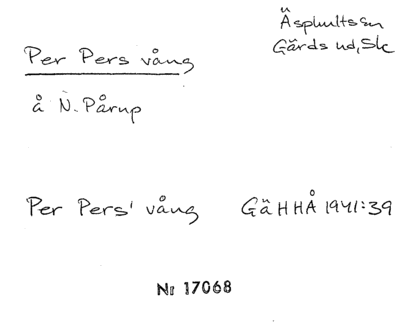 Per Pers vång
Äsphults sn
Gärds hd, Sk
å N. Pårup
Per Pers' vång GäHHÅ 1941:39
Nr 17068